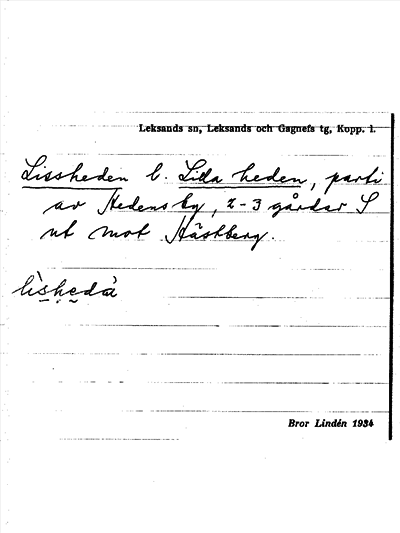 Leksands sn, Leksands och Gagnefs tg, Kopp. l.
Lissheden l. Lilla heden, parti
av Hedens by, 2-3 gårdar S
ut mot Hästberg.
lìshedà
Bror Lindén 1934